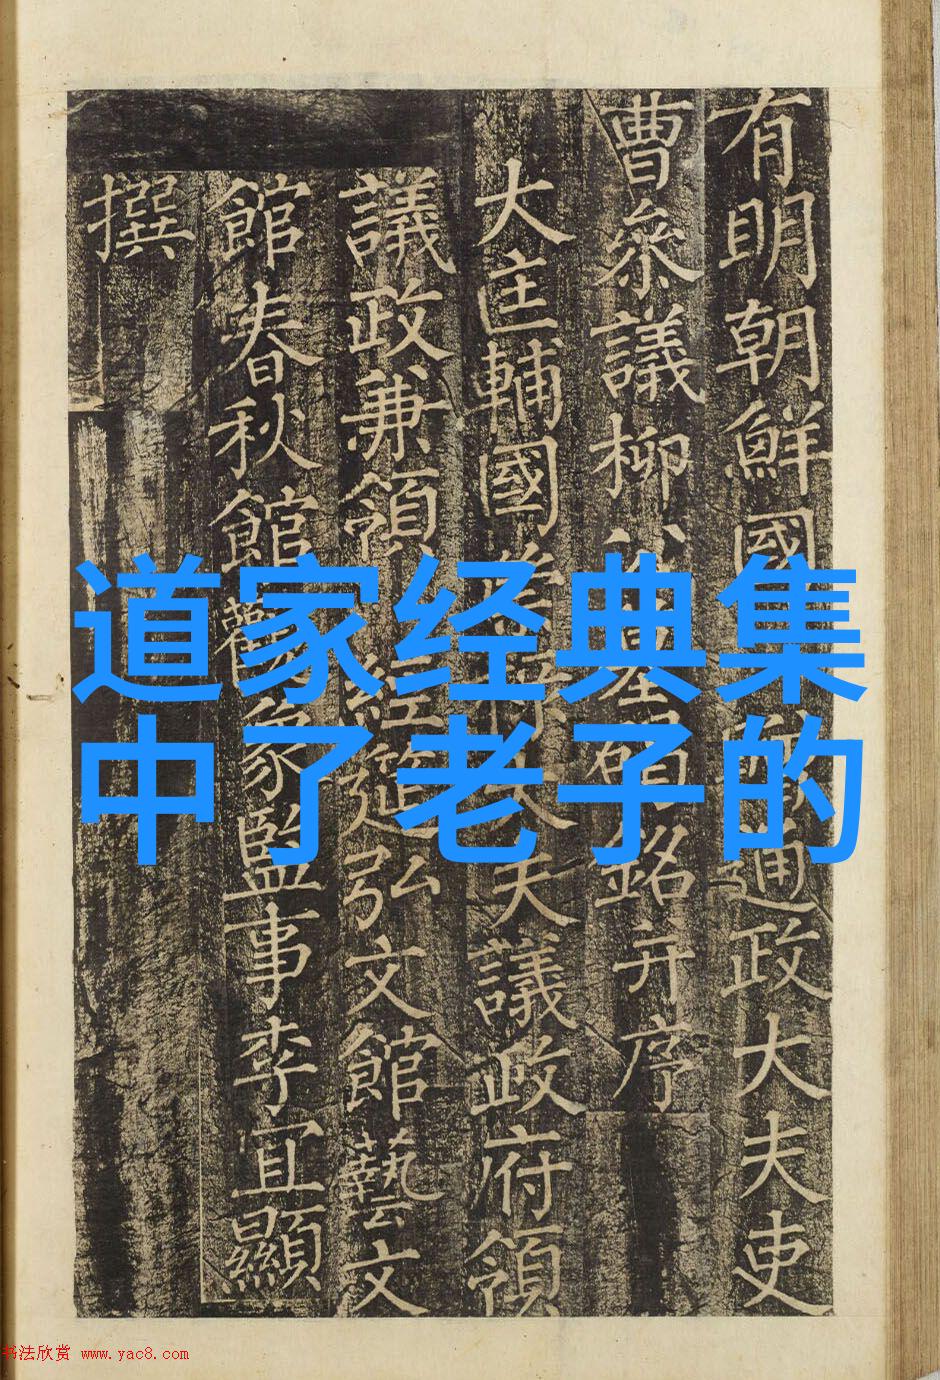 有明朝鮮國通政大夫吏
曹叅議柳公墓碣銘并序
大匡輔國崇祿大夫議政府領
議政兼領經筵弘文館藝文
館春秋館觀象監事李宜顯
撰
道家经典集
中了老子的
书法欣赏 www.yac8.com